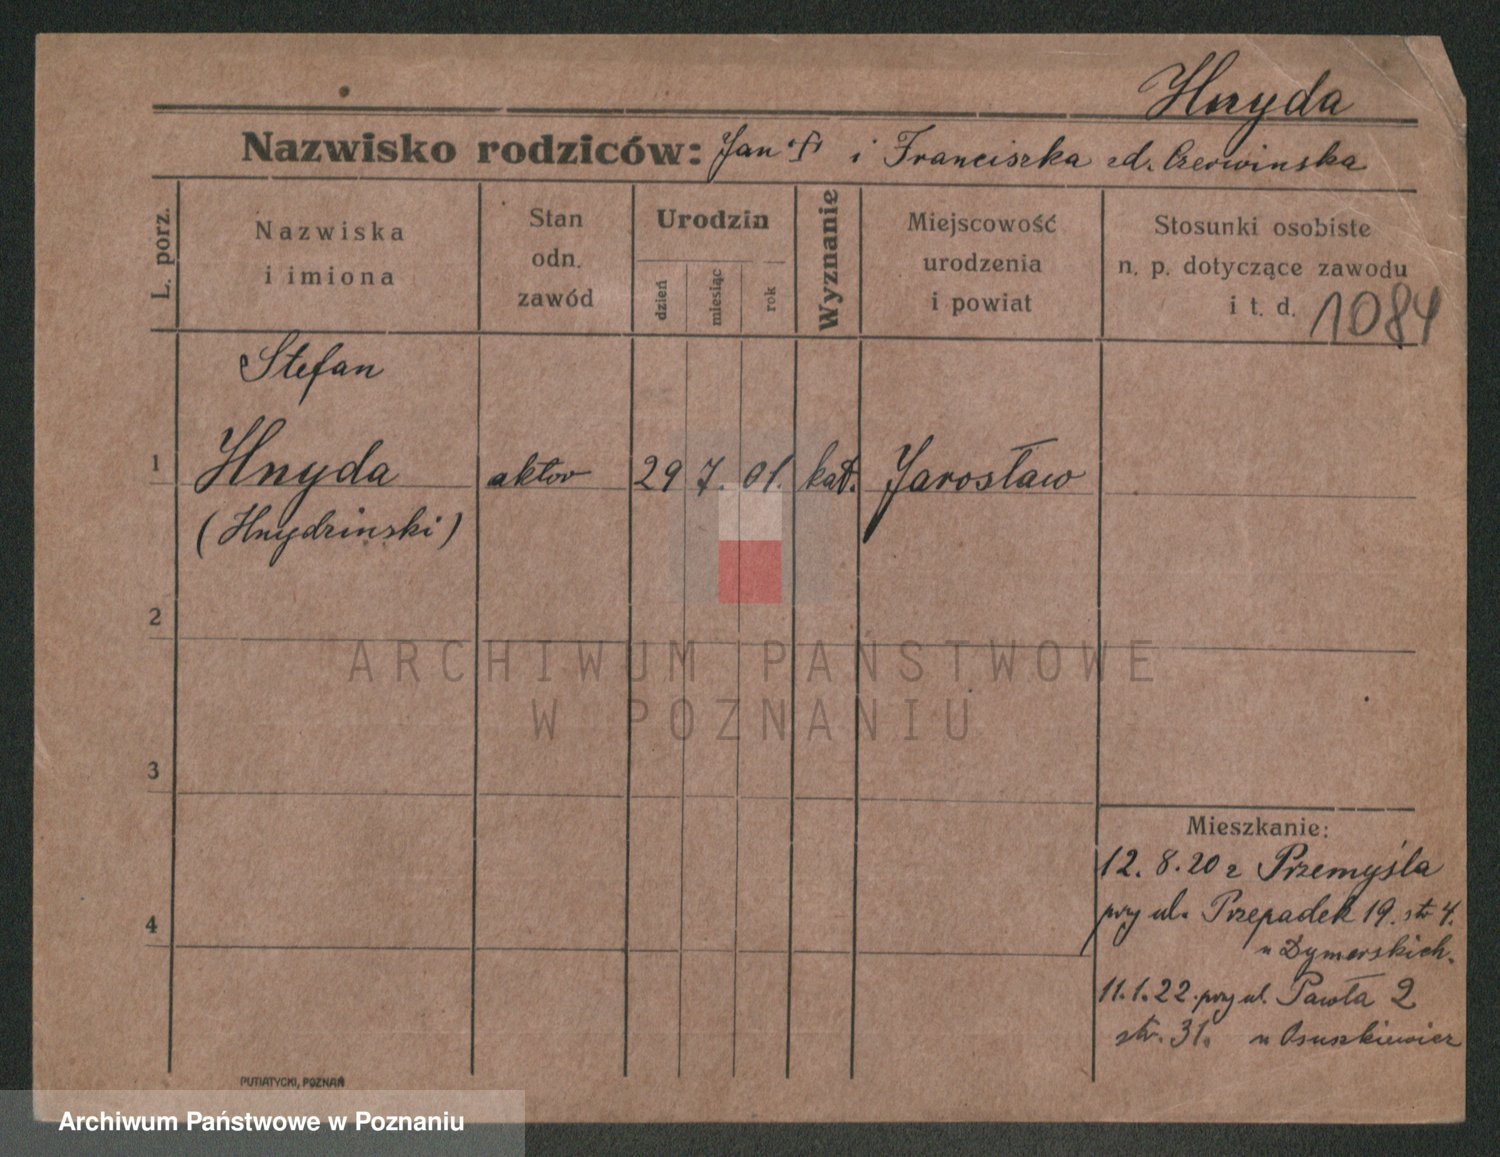 Hnyda
Nazwisko rodziców: Jan i Franciszka zd. Czerwinska
L. porz.
Nazwiska
i imiona
Stan
odn.
zawód
Urodzin
dzień
miesiąc
rok
Wyznanie
Miejscowość
urodzenia
i powiat
Stosunki osobiste
n. p. dotyczące zawodu
i t. d.
1084
Stefan
1 Hnyda aktor 29 7. 01. kat. Jarosław
(Hnydzinski)
2
3
4
Mieszkanie:
12. 8. 20 z Przemyśla
przy ul. Przepadek 19. str 4.
u Dymerskich.
11. 1. 22. przy ul. Pawła 2
str. 31. u Osuszkiewicz
PUTIATYCKI, POZNAŃ
ARCHIWUM PAŃSTWOWE
W POZNANIU
Archiwum Państwowe w Poznaniu